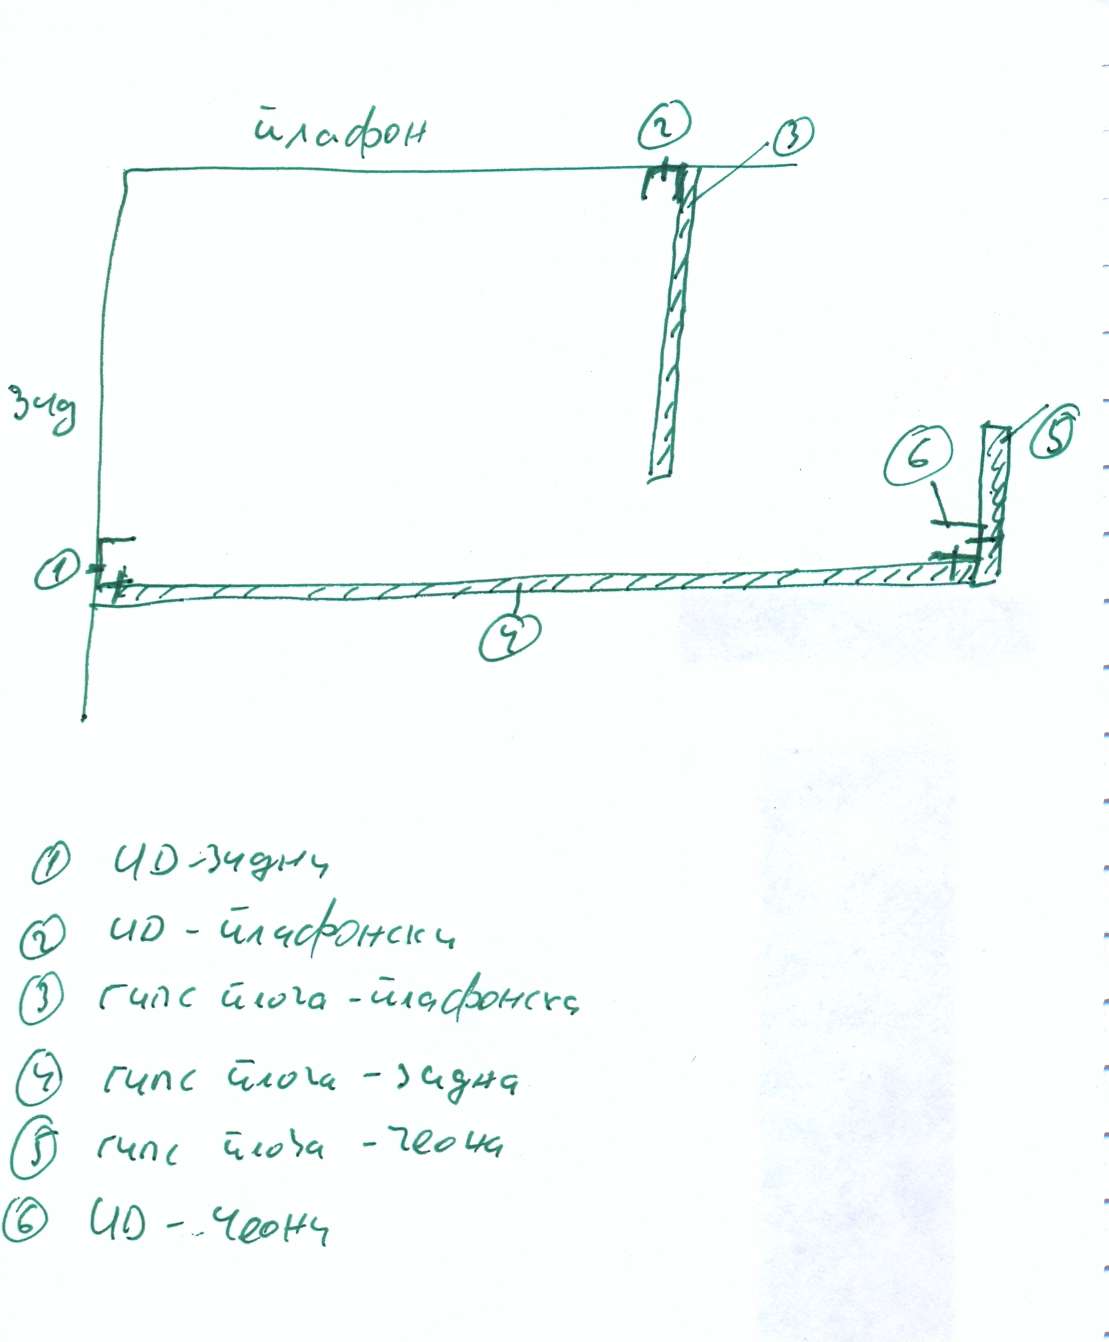 плафон
2
3
зид
6
5
1
4
1 УД-зидни
2 УД - плафонски
3 гипс плоча - плафонска
4 гипс плоча - зидна
5 гипс плоча - чеона
6 УД - чеони